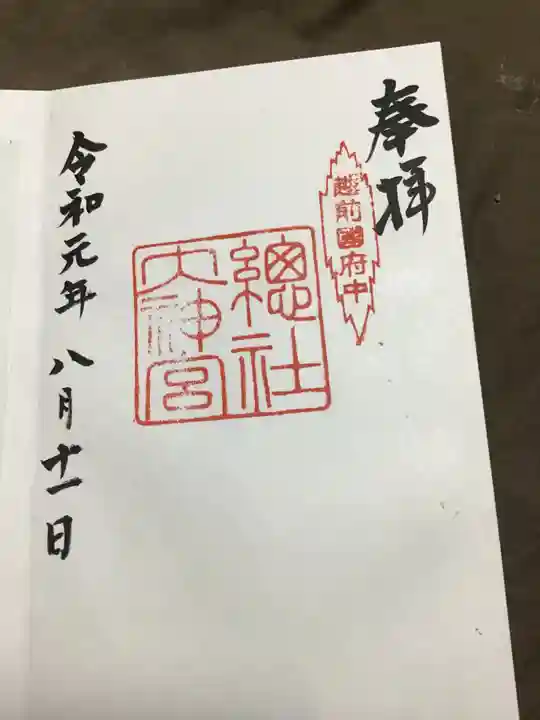 奉拝
越前國府中
總社
大神宮
令和元年八月十一日